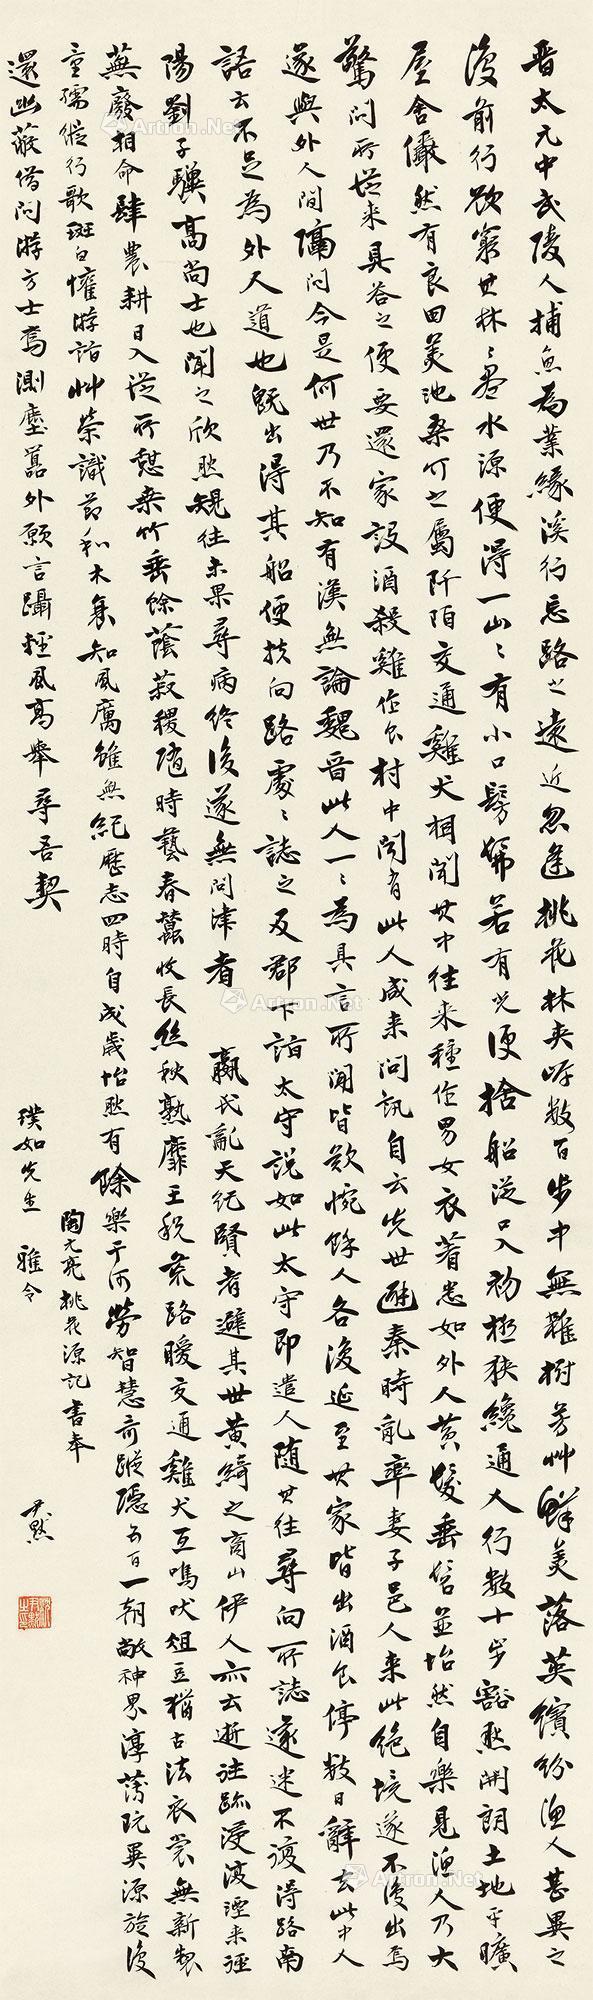 晋太元中武陵人捕魚為業緣溪行忘路之遠近忽逢桃花林夾岸數百步中無雜樹芳艸鮮美落英繽紛漁人甚異之
復前行欲窮其林〻盡水源便得一山〻有小口髣髴若有光便捨船從口入初極狹纔通人行數十步豁然開朗土地平曠
屋舍儼然有良田美池桑竹之屬阡陌交通雞犬相聞其中往來種作男女衣著悉如外人黃髮垂髫並怡然自樂見漁人乃大
驚問所從來具答之便要還家設酒殺雞作食村中聞有此人咸來問訊自云先世避秦時亂率妻子邑人來此絕境遂不復出焉
遂與外人間隔問今是何世乃不知有漢無論魏晉此人一〻為具言所聞皆歎惋餘人各復延至其家皆出酒食停數日辭去此中人
語云不足為外人道也既出得其船便扶向路處〻誌之及郡下詣太守說如此太守即遣人隨其往尋向所誌遂迷不復得路南
陽劉子驥高尚士也聞之欣然規往未果尋病終後遂無問津者 嬴氏亂天紀賢者避其世黃綺之商山伊人亦云逝往跡浸復湮來逕
蕪廢相命肆農耕日入從所憩桑竹垂餘蔭菽稷隨時藝春蠶收長絲秋熟靡王稅荒路曖交通雞犬互鳴吠俎豆猶古法衣裳無新製
童孺縱行歌斑白懽游詣艸榮識節和木衰知風厲雖無紀歷志四時自成歲怡然有餘樂于何勞智慧奇蹤隱五百一朝敞神界淳薄既異源旋復
還幽蔽借問游方士焉測塵囂外願言躡輕風高舉尋吾契
陶元亮桃花源記書奉
璞如先生 雅令
尹默
Artron.Net
Artron.Net
Artron.Net
Artron.Net